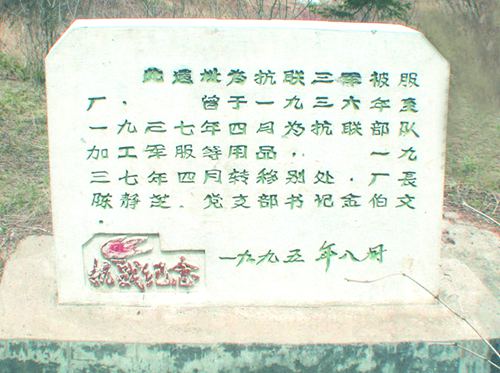 此遗址为抗联三军被服
厂. 曾于一九三六年至
一九三七年四月为抗联部队
加工军服等用品, 一九
三七年四月转移别处. 厂長
陈静芝. 党支部书记金伯文
抗战纪念
一九九五年八月